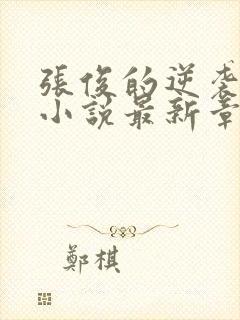 張俊的逆袭
小說最新章
鄭棋